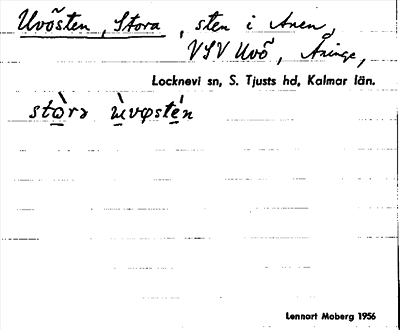 Uvösten, Stora, sten i Anen,
VSV Uvö, Åninge,
Locknevi sn, S. Tjusts hd, Kalmar län.
stὼrə ùvφstén
Lennart Moberg 1956